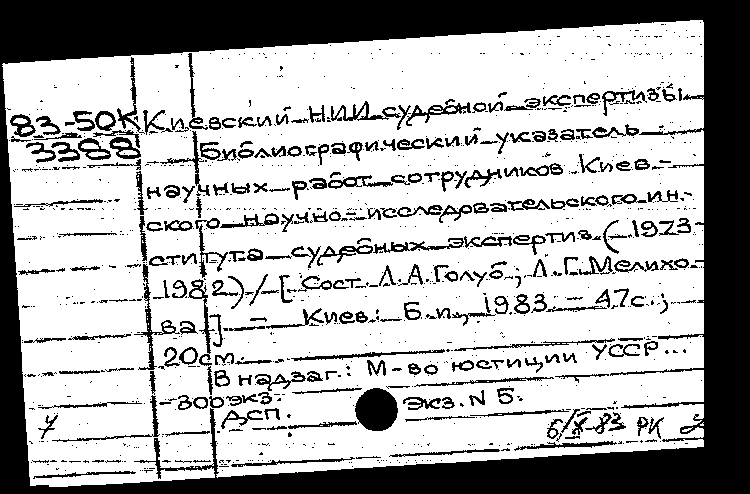 83-50К Киевский НИИ судебной экспертизы
3388 Библиографический указатель
научных работ сотрудников Киев-
ского научно-исследовательского ин-
ститута судебных экспертиз (1973-
1982) / [Сост. Л.А.Голуб, Л.Г.Мелихо-
ва] - Киев: Б.и., 1983. - 47с.;
20см.
В надзаг.: М-во юстиции УССР...
-300экз.
ДСП. Экз. N 5.
6/X-83 РК